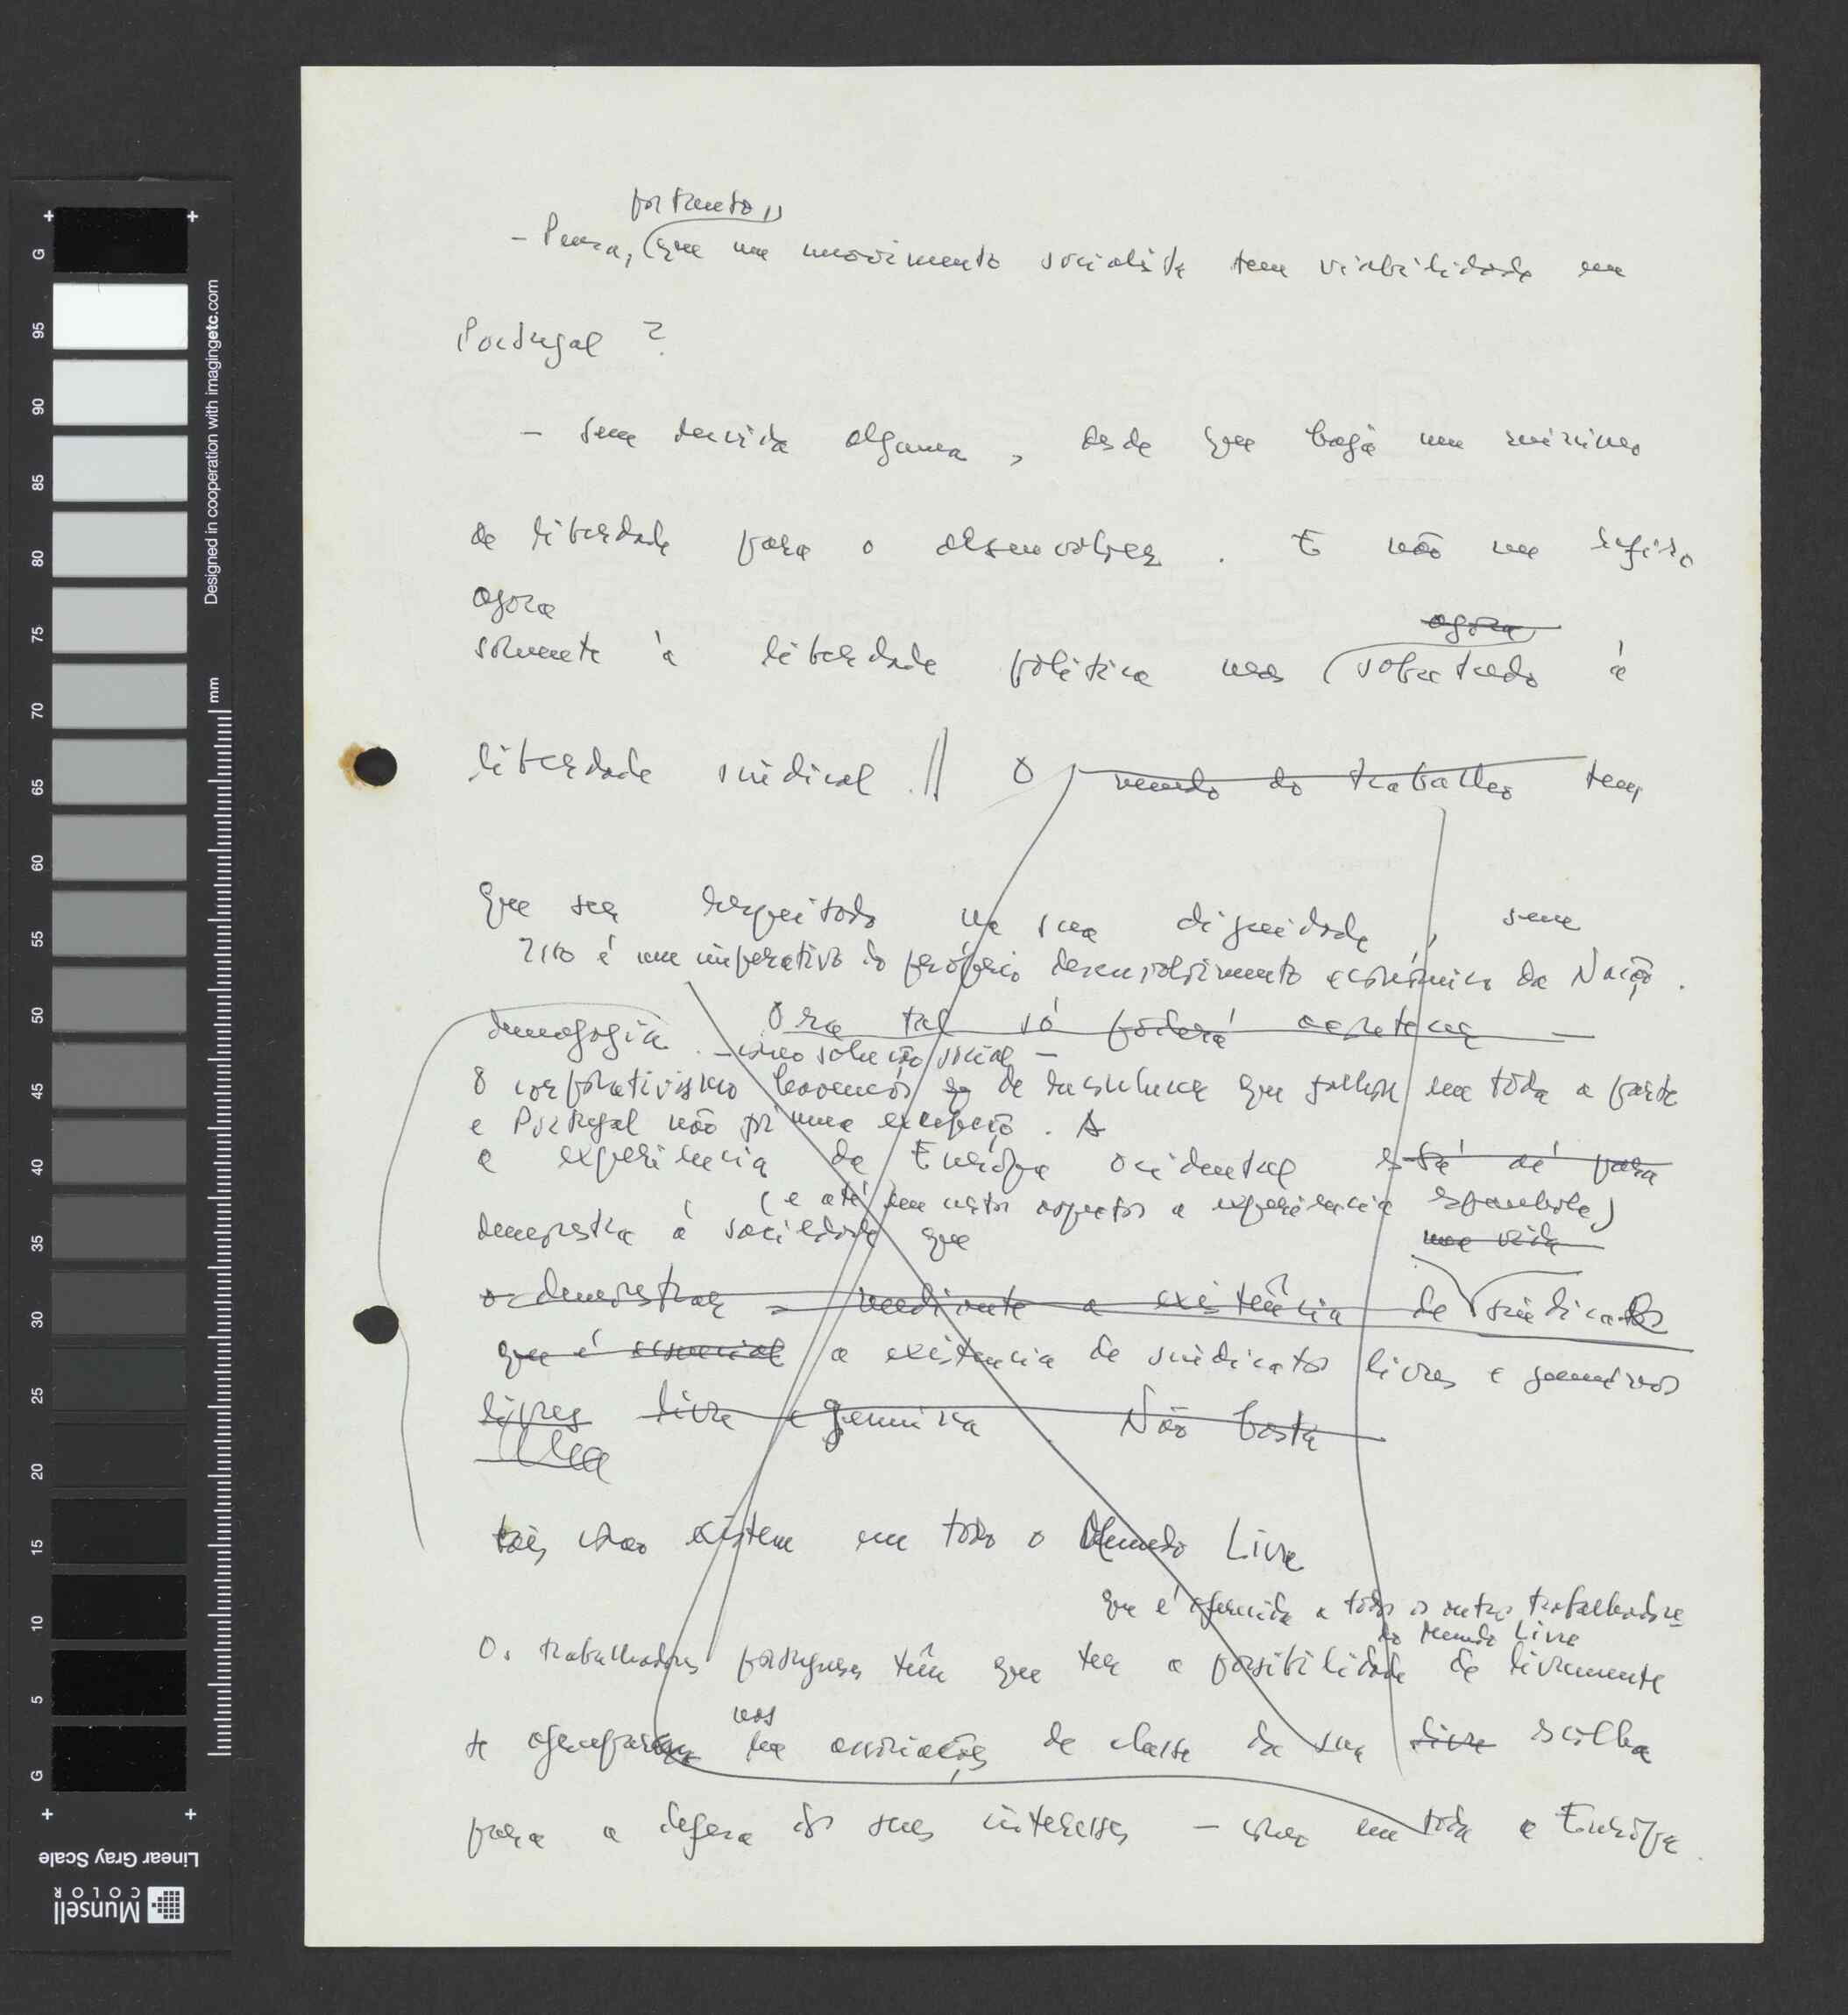 portanto,
- Pensa, que um movimento socialista tem viabilidade em
Portugal ?
- Sem dúvida alguma, desde que haja um mínimo
de liberdade para o desenvolver. E não me refiro
agora
agora
somente à liberdade política mas sobretudo à
liberdade sindical. // O mundo do trabalho tem
que ser respeitado na sua dignidade, sem
Isto é um imperativo do próprio desenvolvimento económico da Nação.
demagogia. Ora tal só poderá acontecer
- como solução social -
O corporativismo havemos de reconhecer que falhou em toda a parte
e Portugal não foi uma excepção. A
a experiência da Europa ocidental está aí para
(e até em certos aspectos a experiência espanhola)
demonstra à saciedade que
uma vida
o demonstrar - mediante a existência de sindicatos
que é essencial a existência de sindicatos livres e genuínos
livres livre e genuína Não basta
tais como existem em todo o Mundo Livre
que é oferecida a todos os outros trabalhadores
do Mundo Livre
Os trabalhadores portugueses têm que ter a possibilidade de livremente
nas
se agruparem em associações de classe da sua livre escolha
para a defesa dos seus interesses - como em toda a Europa.
G
95
90
85
80
75
70
65
60
55
50
45
40
35
30
25
20
15
10
5
G
mm
Designed in cooperation with imagingetc.com
Linear Gray Scale
Munsell
COLOR